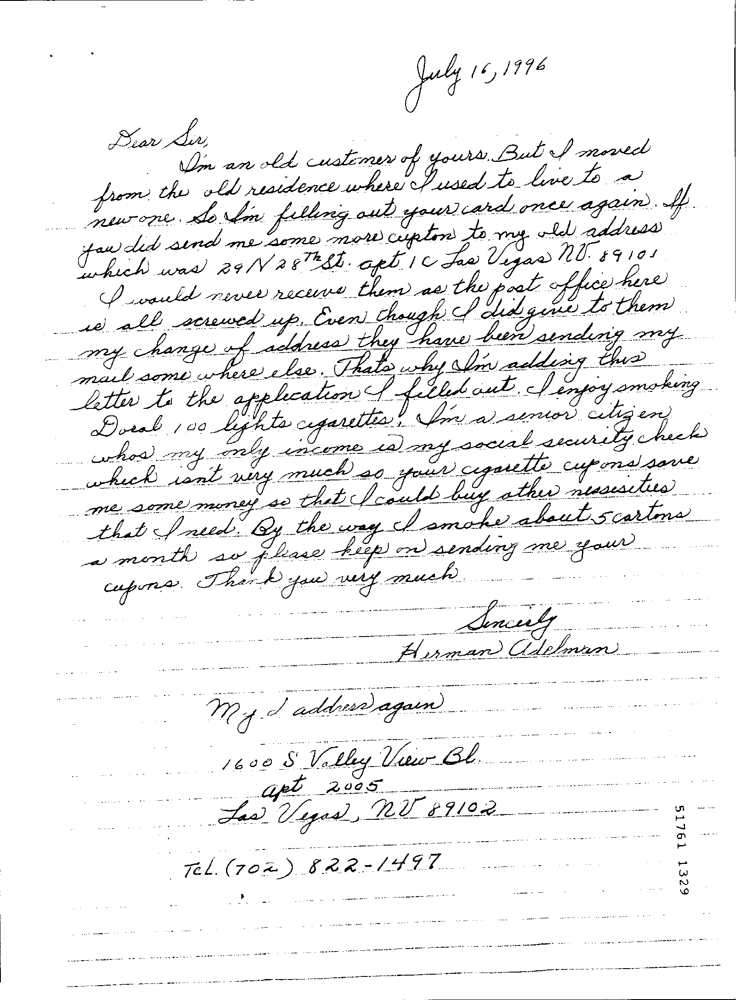 July 16, 1996
Dear Sir,
I'm an old customer of yours. But I moved
from the old residence where I used to live to a
new one. So I'm filling out your card once again. If
you did send me some more cupton to my old address
which was 29 N 28th St. apt 1C Las Vegas NV. 89101
I would never receive them as the post office here
is all screwed up. Even though I did give to them
my change of address they have been sending my
mail some where else. Thats why I'm adding this
letter to the application I filled out. I enjoy smoking
Doral 100 lights cigarettes. I'm a senior citizen
whos my only income is my social security check
which isn't very much so your cigarette cupons save
me some money so that I could buy other nessisities
that I need. By the way I smoke about 5 cartons
a month so please keep on sending me your
cupons. Thank you very much
Sincerly
Herman Adelman
My address again
1600 S Valley View Bl.
apt 2005
Las Vegas, NV 89102
Tel. (702) 822-1497
51761 1329